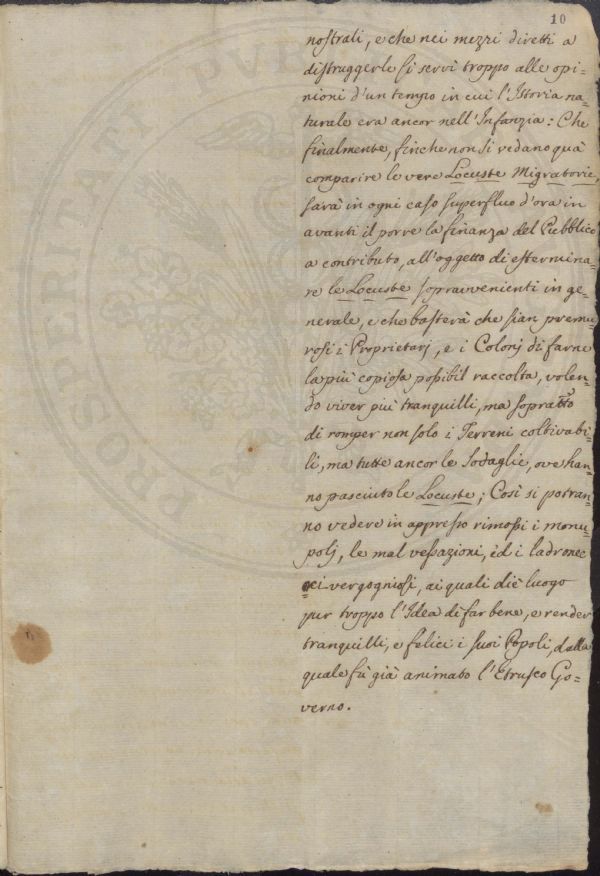 10
nostrali, e che nei mezzi diretti a
distruggerle si servì troppo alle opi=
nioni d'un tempo in cui l'Istoria na=
turale era ancor nell'Infanzia: Che
finalmente, finche non si vedano quà
comparire le vere Locuste Migratorie,
sarà in ogni caso superfluo d'ora in
avanti il porre la finanza del Pubblico
a contributo, all'oggetto di estermina=
re le Locuste sopravvenienti in ge=
nerale, e che basterà che sian premu=
rosi i Proprietarj, e i Colonj di farne
la più copiosa possibil raccolta, volen=
do viver più tranquilli, ma soprattto
di romper non solo i Terreni coltivabi=
li, ma tutte ancor le Sodaglie, ove han=
no pasciuto le Locuste; Così si potran=
no vedere in appresso rimossi i monu=
polj, le mal vessazioni, èd i ladronec=
=ci vergogniosi, ai quali diè luogo
pur troppo l'Idea di far bene, e render
tranquilli, e felici i suoi Popoli, dalla
quale fù già animato l'Etrusco Go=
verno.